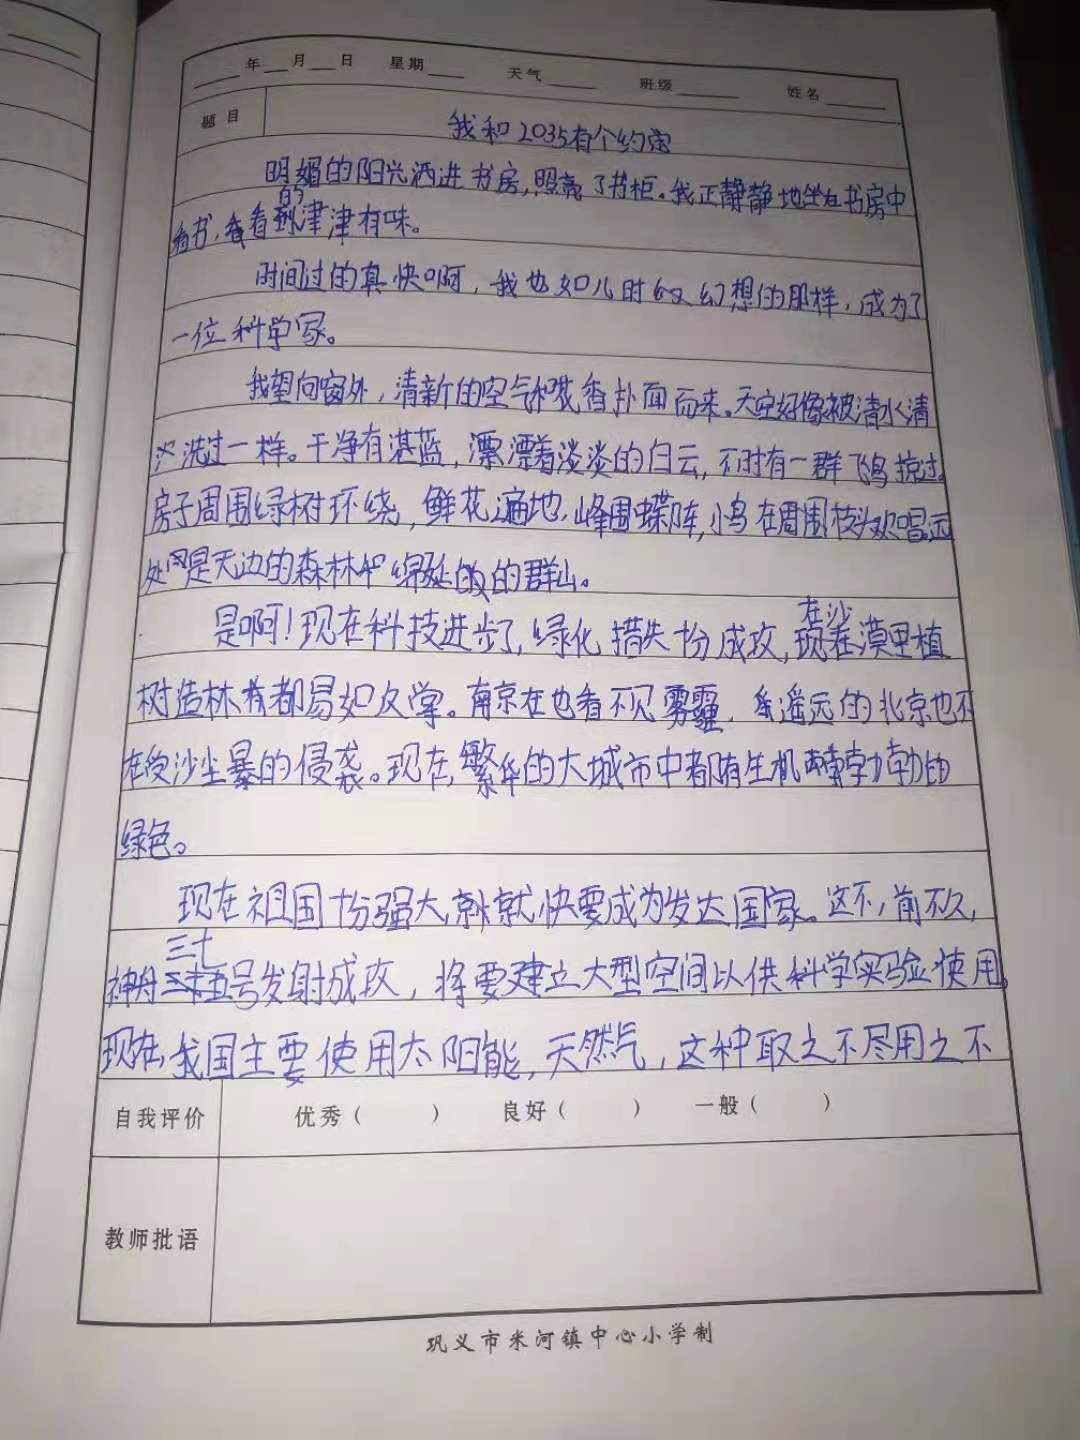 年 月 日 星期 天气 班级 姓名
题目 我和2035有个约定
明媚的阳光洒进书房,照亮了书柜。我正静静地坐在书房中
看书,看的津津有味。
时间过的真快啊,我也如儿时幻想的那样,成为了
一位科学家。
我望向窗外,清新的空气和花香扑面而来。天空好像被清水清
洗过一样。干净有湛蓝,漂漂着淡淡的白云,不时有一群飞鸟掠过。
房子周围绿树环绕,鲜花遍地,峰围蝶阵,小鸟在周围枝头欢唱,远
处是无边的森林和绵延的群山。
是啊!现在科技进步了,绿化措失十份成攻,在沙漠里植
树造林都易如反掌。南京在也看不见雾霾,遥远的北京也不
在受沙尘暴的侵袭。现在,繁华的大城市中都有生机勃勃的
绿色。
现在祖国十份强大,就快要成为发达国家。这不,前不久,
神舟三七号发射成攻,将要建立大型空间以供科学实验使用。
现在,我国主要使用太阳能,天然气,这种取之不尽用之不
自我评价 优秀( ) 良好( ) 一般( )
教师批语
巩义市米河镇中心小学制